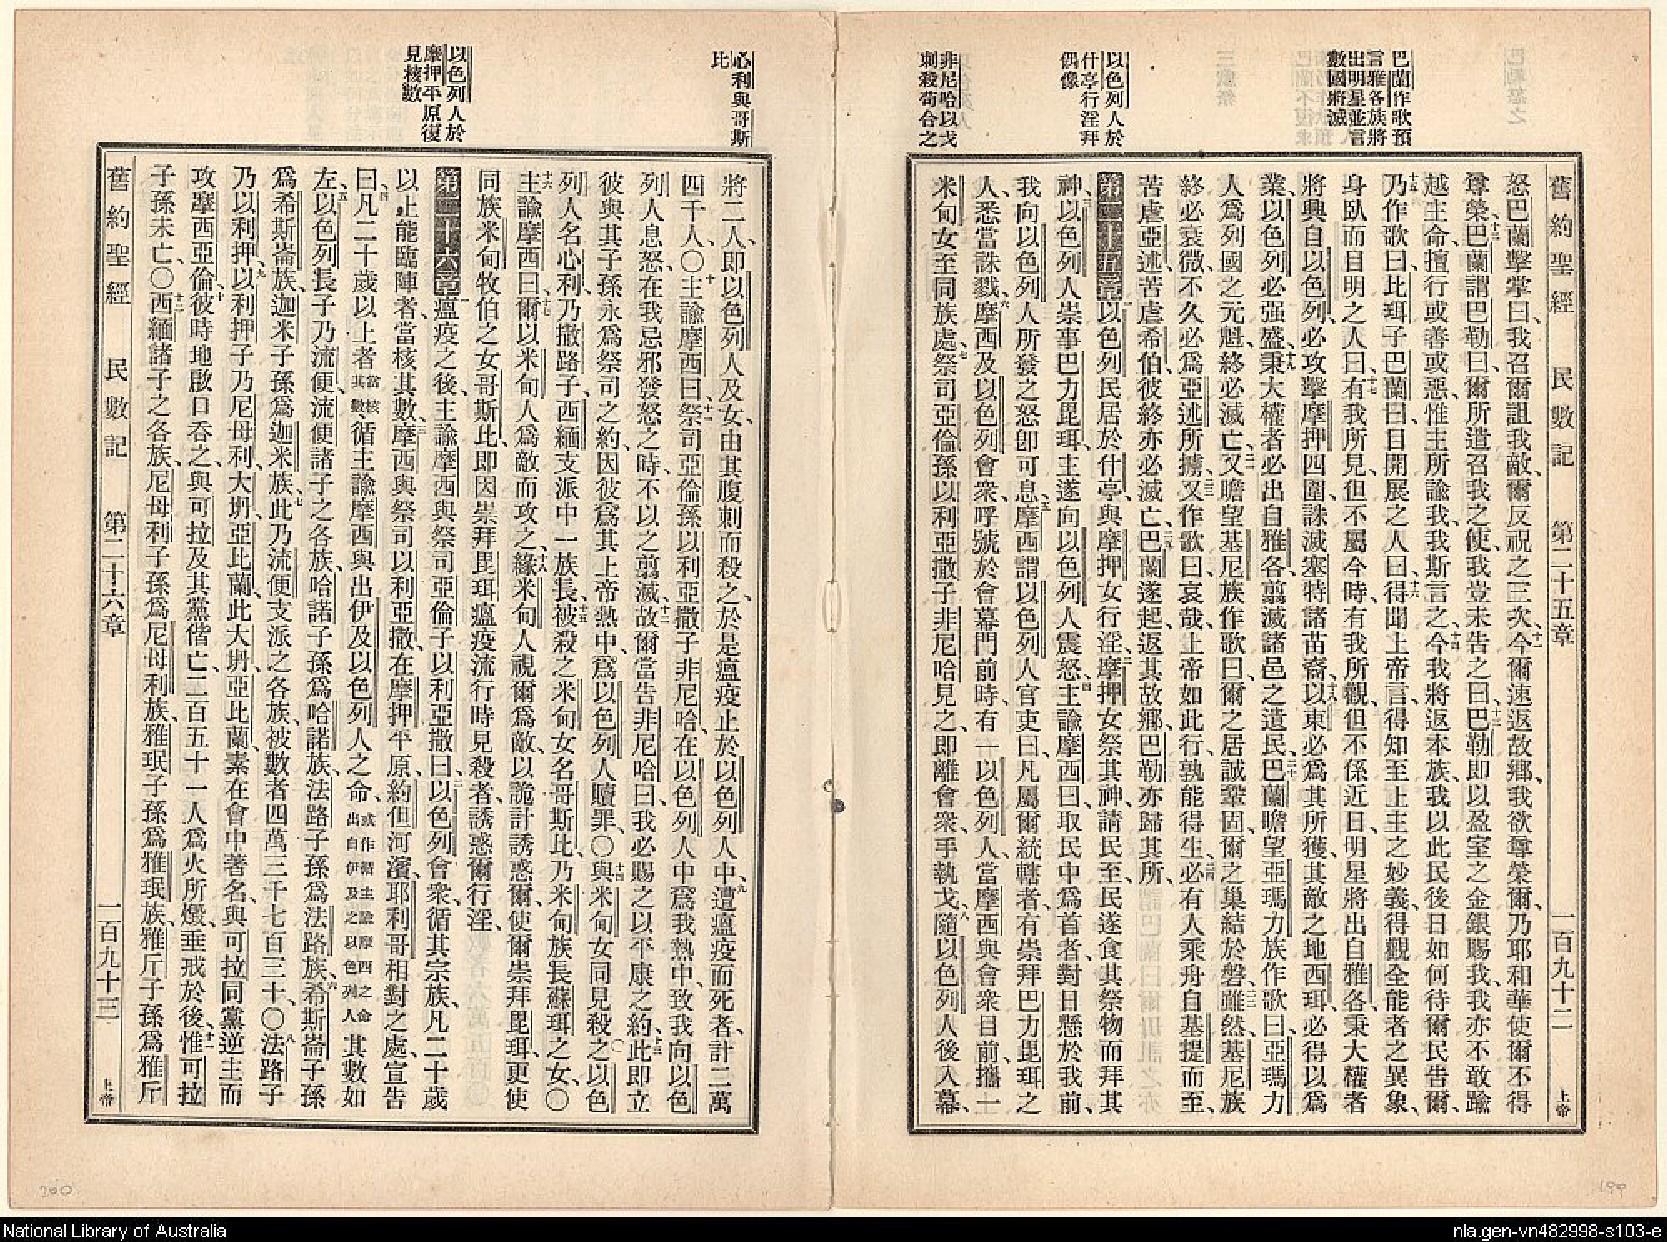 巴蘭作歌預
言雅各族將
出明星並言
數國將滅
以色列人於
什亭行淫拜
偶像
非尼哈以戈
刺殺苟合之
舊約聖經 民數記 第二十五章 一百九十二 上帝
怒巴蘭擊掌曰我召爾詛我敵爾反祝之三次今爾速返故鄉我欲尊榮爾乃耶和華使爾不得
尊榮巴蘭謂巴勒曰爾所遣召我之使我豈未告之曰巴勒即以盈室之金銀賜我我亦不敢踰
越主命擅行或善或惡惟主所諭我我斯言之今我將返本族我以此民後日如何待爾民告爾
乃作歌曰比珥子巴蘭曰目開展之人曰得聞上帝言得知至上主之妙義得觀全能者之異象
身臥而目明之人曰有我所見但不屬今時有我所觀但不係近日明星將出自雅各秉大權者
將興自以色列必攻擊摩押四圍誅滅塞特諸苗裔以東必為其所獲其敵之地西珥必得以為
業以色列必强盛秉大權者必出自雅各翦滅諸邑之遺民巴蘭瞻望亞瑪力族作歌曰亞瑪力
人為列國之元魁終必滅亡又瞻望基尼族作歌曰爾之居誠鞏固爾之巢結於磐雖然基尼族
終必衰微不久必為亞述所擄又作歌曰哀哉上帝如此行孰能得生必有人乘舟自基提而至
苦虐亞述苦虐希伯彼終亦必滅亡巴蘭遂起返其故鄉巴勒亦歸其所
第二十五章以色列民居於什亭與摩押女行淫摩押女祭其神請民至民遂食其祭物而拜其
神以色列人崇事巴力毘珥主遂向以色列人震怒主諭摩西曰取民中為首者對日懸於我前
我向以色列人所發之怒即可息摩西謂以色列人官吏曰凡屬爾統轄者有崇拜巴力毘珥之
人悉當誅戮摩西及以色列會衆呼號於會幕門前時有一以色列人當摩西與會衆目前攜一
米甸女至同族處祭司亞倫孫以利亞撒子非尼哈見之即離會衆手執戈隨以色列人後入幕
心利與哥斯
比
以色列人於
摩押平原復
見核數
將二人即以色列人及女由其腹刺而殺之於是瘟疫止於以色列人中遭瘟疫而死者計二萬
四千人〇主諭摩西曰祭司亞倫孫以利亞撒子非尼哈在以色列人中為我熱中致我向以色
列人息怒在我忌邪發怒之時不以之翦滅故爾當告非尼哈曰我必賜之以平康之約此即立
彼與其子孫永為祭司之約因彼為其上帝熱中為以色列人贖罪〇與米甸女同見殺之以色
列人名心利乃撒路子西緬支派中一族長被殺之米甸女名哥斯比乃米甸族長蘇珥之女〇
主諭摩西曰爾以米甸人為敵而攻之緣米甸人視爾為敵以詭計誘惑爾使爾崇拜毘珥更使
同族米甸牧伯之女哥斯比即因崇拜毘珥瘟疫流行時見殺者誘惑爾行淫
第二十六章瘟疫之後主諭摩西與祭司亞倫子以利亞撒曰以色列會衆循其宗族凡二十歲
以上能臨陣者當核其數摩西與祭司以利亞撒在摩押平原約但河濱耶利哥相對之處宣告
曰凡二十歲以上者當核其數循主諭摩西與出伊及以色列人之命或作循主諭摩西之命出自伊及之以色列人其數如
左以色列長子乃流便流便諸子之各族哈諾子孫為哈諾族法路子孫為法路族希斯崙子孫
為希斯崙族迦米子孫為迦米族此乃流便支派之各族被數者四萬三千七百三十〇法路子
乃以利押以利押子乃尼母利大坍亞比蘭此大坍亞比蘭素在會中著名與可拉同黨逆主而
攻摩西亞倫彼時地啟口吞之與可拉及其黨偕亡二百五十一人為火所燬垂戒於後惟可拉
子孫未亡〇西緬諸子之各族尼母利子孫為尼母利族雅珉子孫為雅珉族雅斤子孫為雅斤
舊約聖經 民數記 第二十六章 一百九十三 上帝
200
199
National Library of Australia
nla.gen-vn482998-s103-e